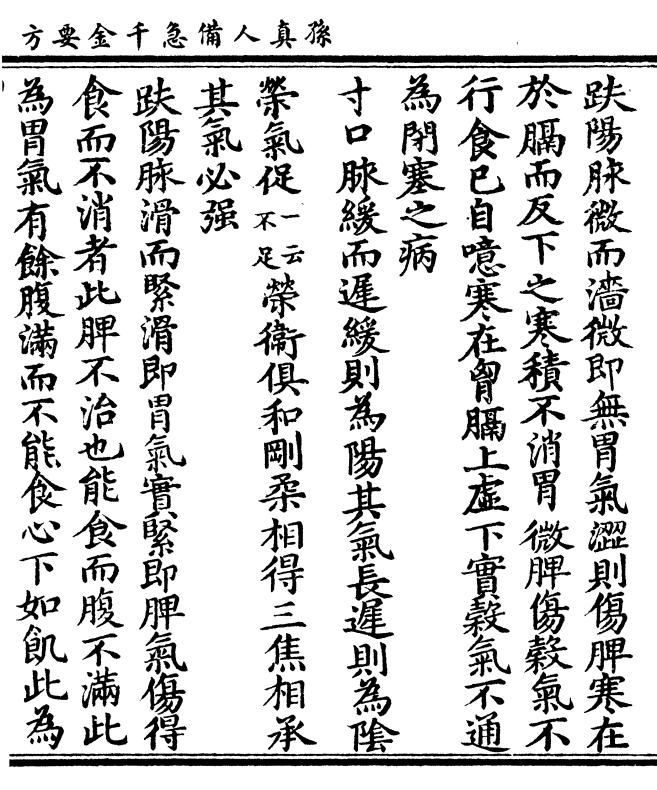 孫真人備急千金要方
趺陽脉微而濇微即無胃氣澀則傷脾寒在
於膈而反下之寒積不消胃微脾傷穀氣不
行食已自噫寒在胷膈上虛下實穀氣不通
為閉塞之病
寸口脉緩而遲緩則為陽其氣長遲則為陰
榮氣促一云不足榮衞俱和剛柔相得三焦相承
其氣必强
趺陽脉滑而緊滑即胃氣實緊即脾氣傷得
食而不消者此脾不治也能食而腹不滿此
為胃氣有餘腹滿而不能食心下如飢此為